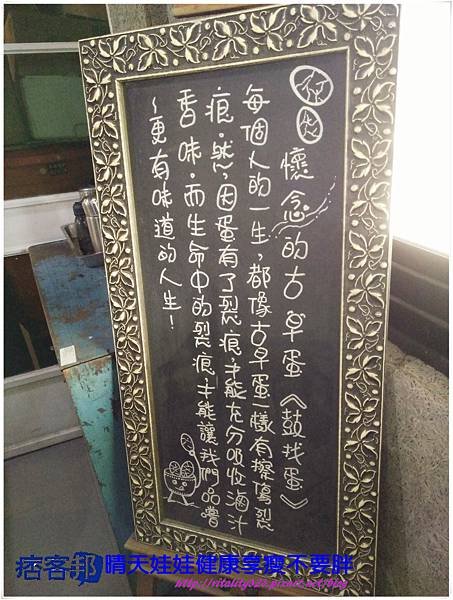 懷念的古早蛋《鼓找蛋》
每個人的一生,都像古早蛋一樣有擦傷裂
痕.然,因蛋有了裂痕,才能充分吸收滷汁
香味.而生命中的裂痕,才能讓我們品嚐
~更有味道的人生!
痞客邦 晴天娃娃健康享瘦不要胖